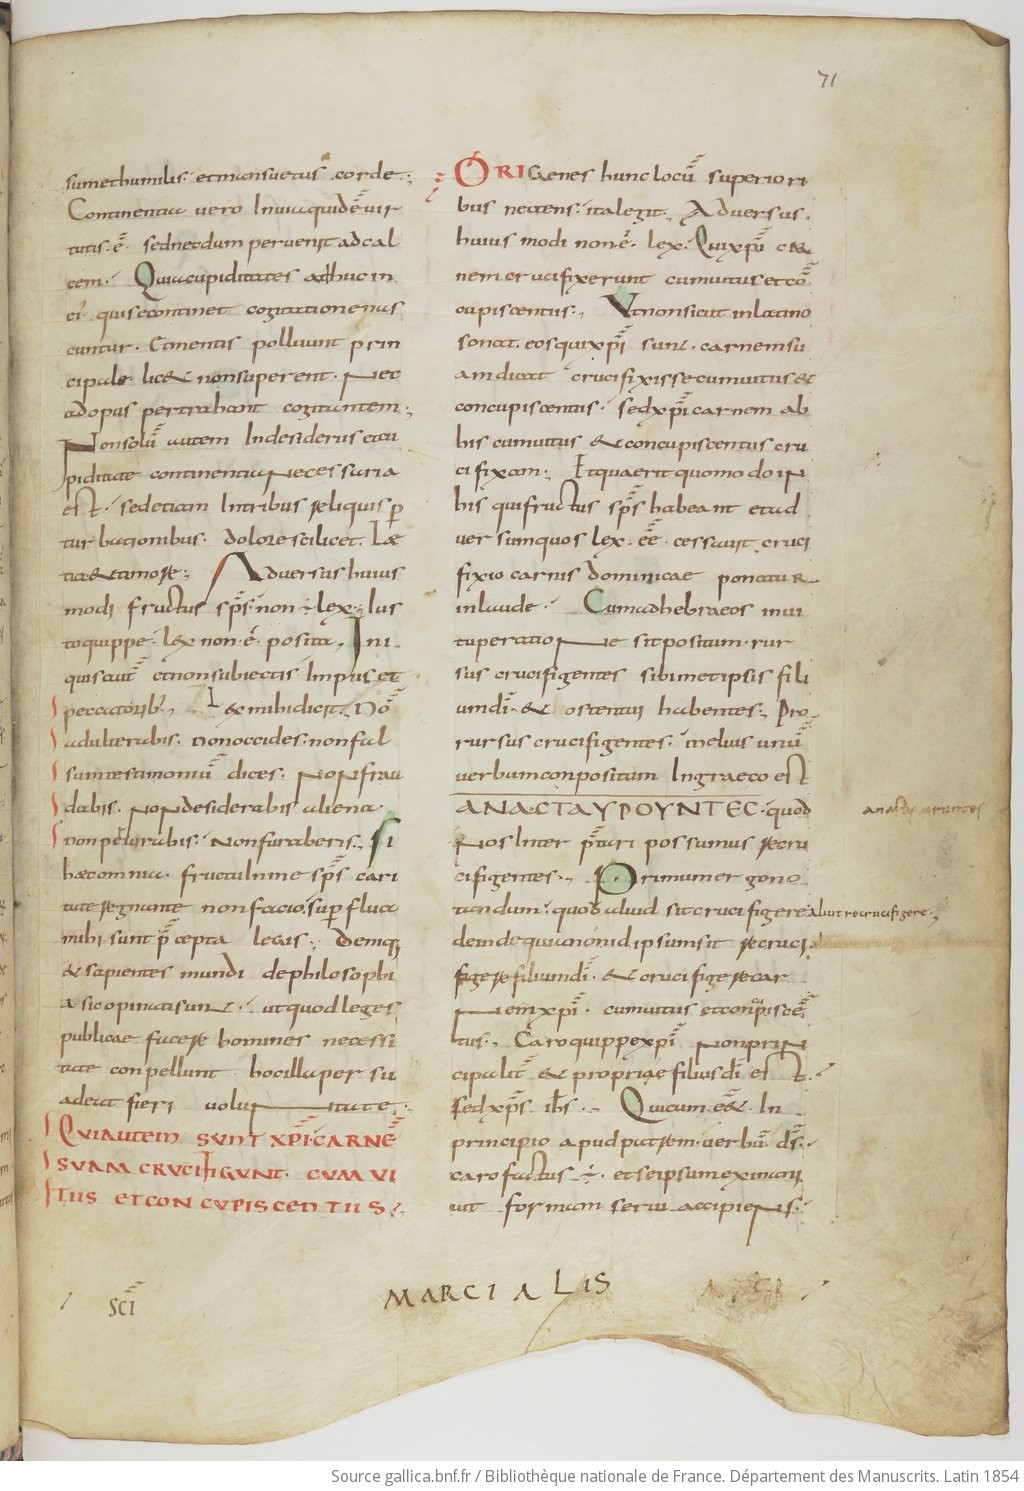 71
sum et humilis · et mansuetus corde ·;
Continentia vero In uia quidē vir
tutis · ē · sed necdum peruenit ad cal
cem · Quia cupiditates adhuc in
ei' quise continet cogitatione nas
cuntur · Et mentis polluunt prin
cipale · lic& non superent · Nec
ad opus pertrahant cogitantem ·;
Non solū autem In desideriis et cu
piditate continentia Necessaria
est · sed etiam In tribus reliquis p
turbationibus · dolore scilicet · Lae
titia & timore · Aduersus huius
modi fructus sp̄s · non ÷ lex · Ius
to quippe · lex non · ē · posita · Ini
quis autē et non subiectis Impiis et
peccatorib; · L & mihi dicit · Nō
adulterabis · non occides · non fal
sum testimoniū dices · Non frau
dabis · Non desiderabis aliena ·
non peierabis · Non furaberis · Si
haec omnia · fructu In me sp̄s cari
tate regnante non facio · superflua
mihi sunt p̄cepta legis · Deniq;
& sapientes mundi de philosophi
a sic opinati sunt · ut quod leges
publicae facere homines necessi
tate conpellunt · hoc illa persu
adeat fieri voluntate ·
QUI AUTEM SUNT XP̄I · CARNĒ
SUAM CRUCIFIGUNT · CUM VI
TIIS ET CONCUPISCENTIIS ·
ORIGenes hunc locū superiori
bus nectens · ita legit · Aduersus
huius modi non · ē · lex · Qui xp̄i car
nem crucifixerunt cum uitiis et cō
cupiscentiis · Ut non sicut in latino
sonat · eos qui xp̄i sunt · carnem su
am dicat crucifixisse cum uitiis &
concupiscentiis · sed xp̄i carnem ab
his cum uitiis & concupiscentiis cru
cifixam · Et quaerit quomodo in
his qui fructus sp̄s habeant et ad
uersum quos lex · eē · cessauit cruci
fixio carnis dominicae ponatur
in laude · Cum ad hebraeos in ui
tuperatione sit positum · rur
sus crucifigentes sibimet ipsis fili
um dī · & ostentui habentes · Pro
rursus crucifigentes · melius unū
uerbum conpositum In graeco est
ANACTAYPOYNTEC · quod
Nos Inter p̄tari possumus recru
cifigentes · Primum ergo no
tandum · quod aliud sit crucifigere aliut recrucifigere ·
deinde qui a non id ipsum sit recruci
figere filium dī · & crucifigere car
nem xp̄i · cum uitiis et conpiscē
tiis · Caro quippe xp̄i Non prin
cipalit̄ & propriae filius dī est ·
sed xp̄s ih̄s · Qui cum eēt · In
principio apud patrem · uerbū d̄s ·
caro factus ÷ · et se ipsum exinani
uit formam serui accipiens ·
SCI MARCIALIS